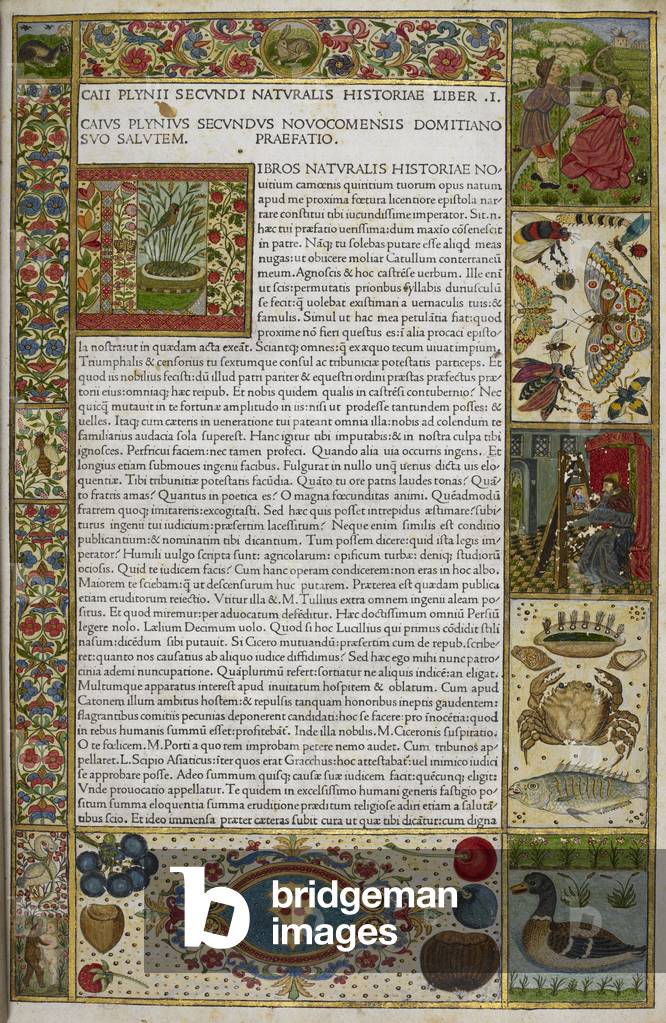 CAII PLYNII SECVNDI NATVRALIS HISTORIAE LIBER .I.
CAIVS PLYNIVS SECVNDVS NOVOCOMENSIS DOMITIANO
SVO SALVTEM. PRAEFATIO.
IBROS NATVRALIS HISTORIAE NO/
uitium camœnis quiritium tuorum opus natum
apud me proxima fœtura licentiore epistola nar/
rare constitui tibi iucundissime imperator. Sit.n.
hæc tui præfatio uerissima: dum maxĩo cõsenescit
in patre. Nãq; tu solebas putare esse aliqd meas
nugas: ut obiicere moliar Catullum conterraneũ
meum. Agnoscis & hoc castrẽse uerbum. Ille eni
ut scis: permutatis prioribus syllabis duriusculũ
se fecit: q̃ uolebat existimari a uernaculis tuis: &
famulis. Simul ut hac mea petulãtia fiat: quod
proxime nõ fieri questus es: ĩ alia procaci episto/
la nostra: ut in quædam acta exeãt. Sciantq; omnes: q̃ ex æquo tecum uiuat impiũ,
Triumphalis & censorius tu sextumque consul ac tribuniciæ potestatis particeps. Et
quod iis nobilius fecisti: dũ illud patri pariter & equestri ordini præstas præfectus præ/
torii eius: omniaq; hæc reipub. Et nobis quidem qualis in castrẽsi contubernio? Nec
quicq̃ mutauit in te fortunæ amplitudo in iis: nisi ut prodesse tantundem posses: &
uelles. Itaq; cum cæteris in ueneratione tui pateant omnia illa: nobis ad colendum te
familiarius audacia sola superest. Hanc igitur tibi imputabis: & in nostra culpa tibi
ignosces. Perfricui faciem: nec tamen profeci. Quando alia uia occurris ingens. Et
longius etiam submoues ingenii facibus. Fulgurat in nullo unq̃ uerius dicta uis elo/
quentiæ. Tibi tribunitiæ potestatis facũdia. Quãto tu ore patris laudes tonas? Quã/
to fratris amas? Quantus in poetica es? O magna fœcunditas animi. Quẽadmodũ
fratrem quoq; imitareris: excogitasti. Sed hæc quis posset intrepidus æstimare? subi/
turus ingenii tui iudicium: præsertim lacessitum? Neque enim similis est conditio
publicantium: & nominatim tibi dicantium. Tum possem dicere: quid ista legis im/
perator? Humili uulgo scripta sunt: agricolarum: opificum turbæ: deniq; studiorũ
ociosis. Quid te iudicem facis? Cum hanc operam condicerem: non eras in hoc albo.
Maiorem te sciebam: q̃ ut descensurum huc putarem. Præterea est quædam publica
etiam eruditorum reiectio. Vtitur illa &.M. Tullius extra omnem ingenii aleam po/
situs. Et quod miremur: per aduocatum defẽditur. Hæc doctissimum omniũ Persiũ
legere nolo. Lælium Decimum uolo. Quod si hoc Lucillius qui primus cõdidit stili
nasum: dicẽdum sibi putauit. Si Cicero mutuandũ: præsertim cum de repub. scribe/
ret: quanto nos causatius ab aliquo iudice diffidimus? Sed hæc ego mihi nunc patro/
cinia ademi nuncupatione. Quãplurimũ refert: sortiatur ne aliquis indicẽ: an eligat.
Multumque apparatus interest apud inuitatum hospitem & oblatum. Cum apud
Catonem illum ambitus hostem: & repulsis tanquam honoribus ineptis gaudentem:
flagrantibus comitiis pecunias deponerent candidati: hoc se facere: pro ĩnocẽtia: quod
in rebus humanis summũ esset: profitebãt. Inde illa nobilis. M. Ciceronis suspiratio.
O te fœlicem. M. Porti a quo rem improbam petere nemo audet. Cum tribunos ap/
pellaret. L. Scipio Asiaticus: ĩter quos erat Gracchus: hoc attestabat: uel inimico iudici
se approbare posse. Adeo summum quisq; causæ suæ iudicem facit: quẽcunq; eligit:
Vnde prouocatio appellatur. Te quidem in excelsissimo humani generis fastigio po/
situm summa eloquentia summa eruditione præditum religiose adiri etiam a salutã/
tibus scio. Et ideo immensa præter cæteras subit cura ut quæ tibi dicãtur: cum digna
b bridgeman
images